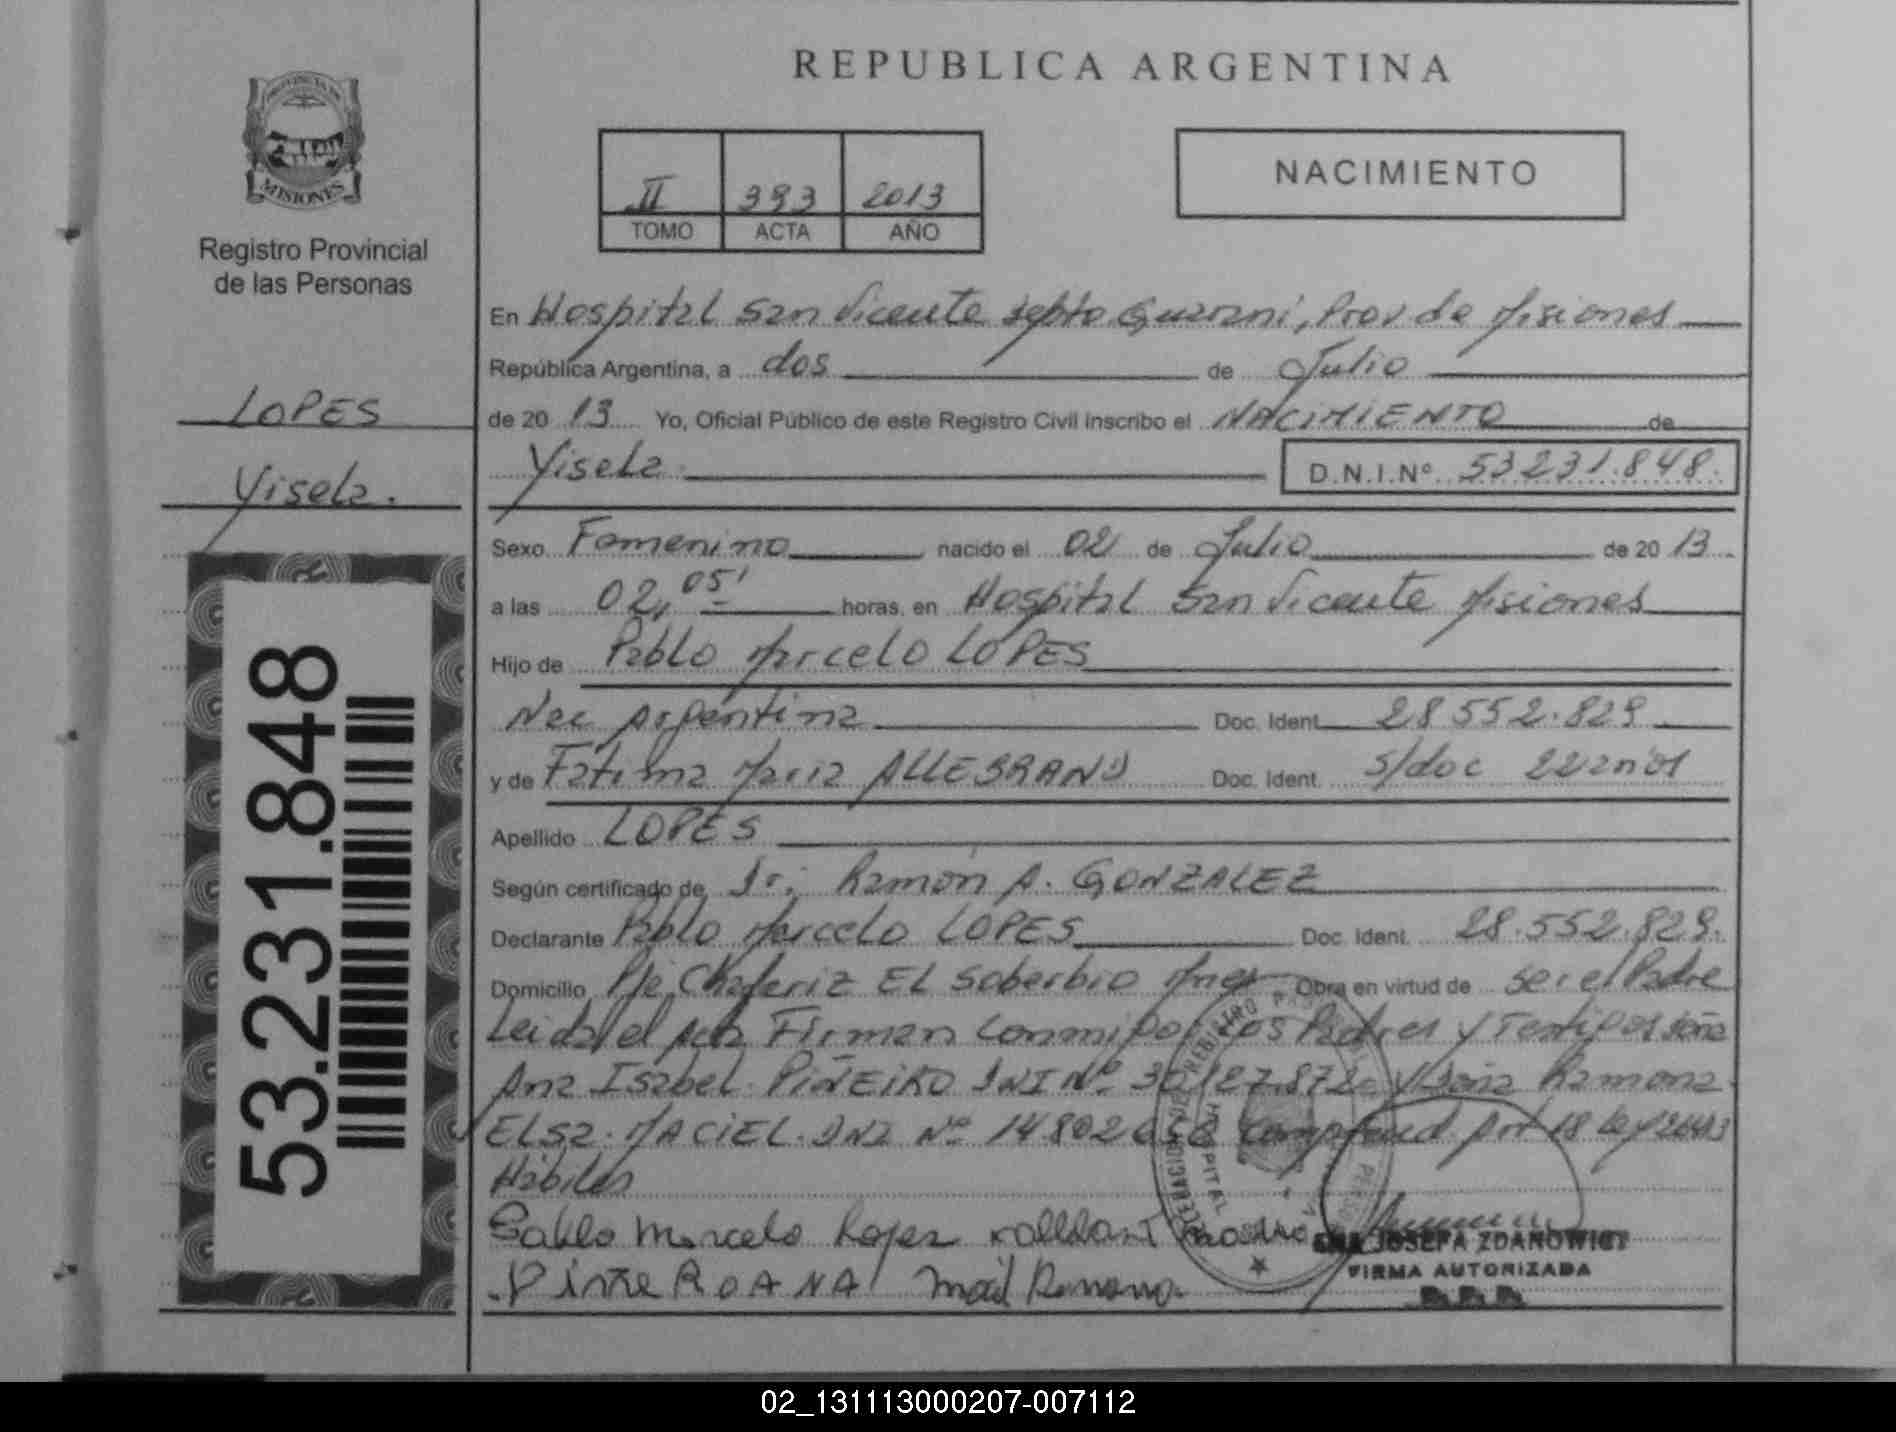 REPUBLICA ARGENTINA
MISIONES
Registro Provincial
de las Personas
II 393 2013
TOMO ACTA AÑO
NACIMIENTO
LOPES
Yisela.
53.231.848
En Hospital San Vicente Depto Guarani, Prov de Misiones
República Argentina, a dos de Julio
de 20 13 Yo, Oficial Público de este Registro Civil inscribo el NACIMIENTO de
Yisela D.N.I.Nº 53231.848.
Sexo Femenino nacido el 02 de Julio de 20 13
a las 02, 05' horas, en Hospital San Vicente Misiones
Hijo de Pablo Marcelo LOPES
Nac Argentina Doc. Ident. 28552.829
y de Fatima Maria Doc. Ident. s/doc 22 años
Apellido LOPES
Según certificado de Dr. Ramón A. GONZALEZ
Declarante Pablo Marcelo LOPES Doc. Ident. 28.552.829.
Domicilio Pje Chafariz EL Soberbio Mnes Obra en virtud de ser el Padre
Leida el acta Firman conmigo Los Padres y Testigos doña
Ana Isabel PIÑEIRO DNI Nº y doña Ramona
ELSA MACIEL Nº por 18
Habiles
Pablo Marcelo Lopez
ROANA Ramona
JOSEFA ZDANOWICZ
FIRMA AUTORIZADA
02_131113000207-007112